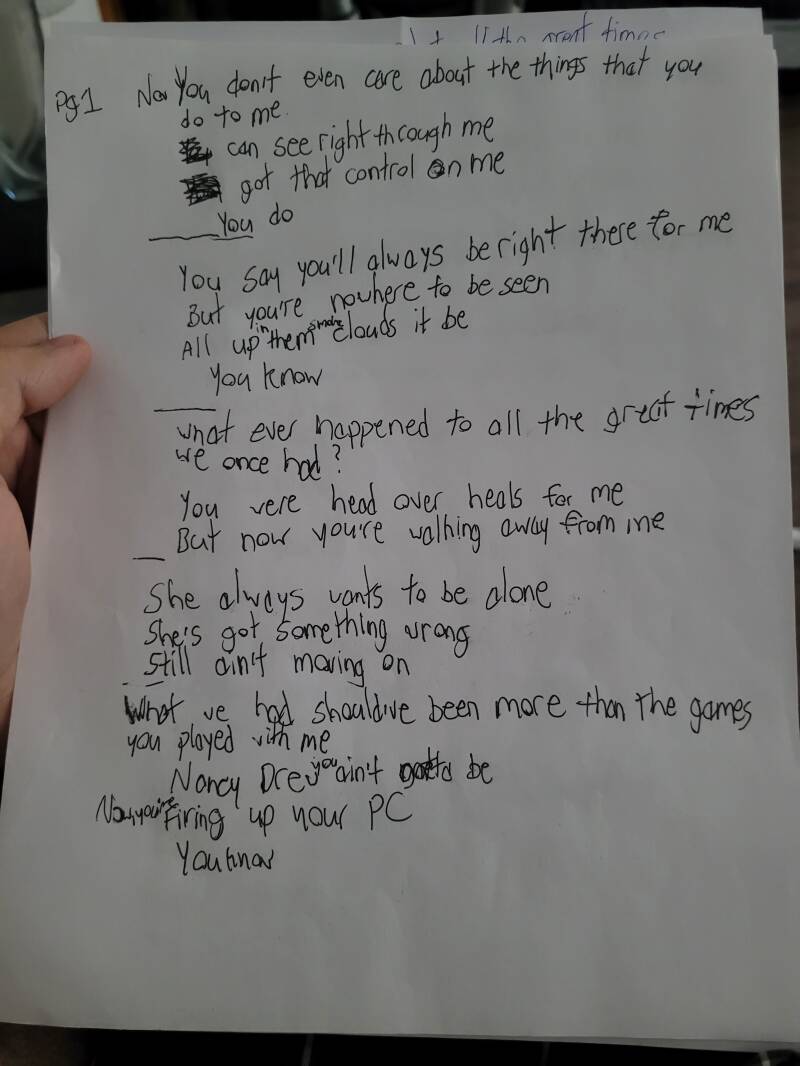 ll the great times
Pg1 Now You don't even care about the things that you
do to me.
can see right through me
got that control on me
You do
You say you'll always be right there for me
But you're nowhere to be seen
All up in them smoke clouds it be
You know
what ever happened to all the great times
we once had?
You were head over heals for me
But now you're walking away from me
She always wants to be alone
She's got something wrong
Still ain't moving on
What we had should've been more than the games
you played with me
Nancy Drew you ain't gotta be
Now you're Firing up your PC
You know